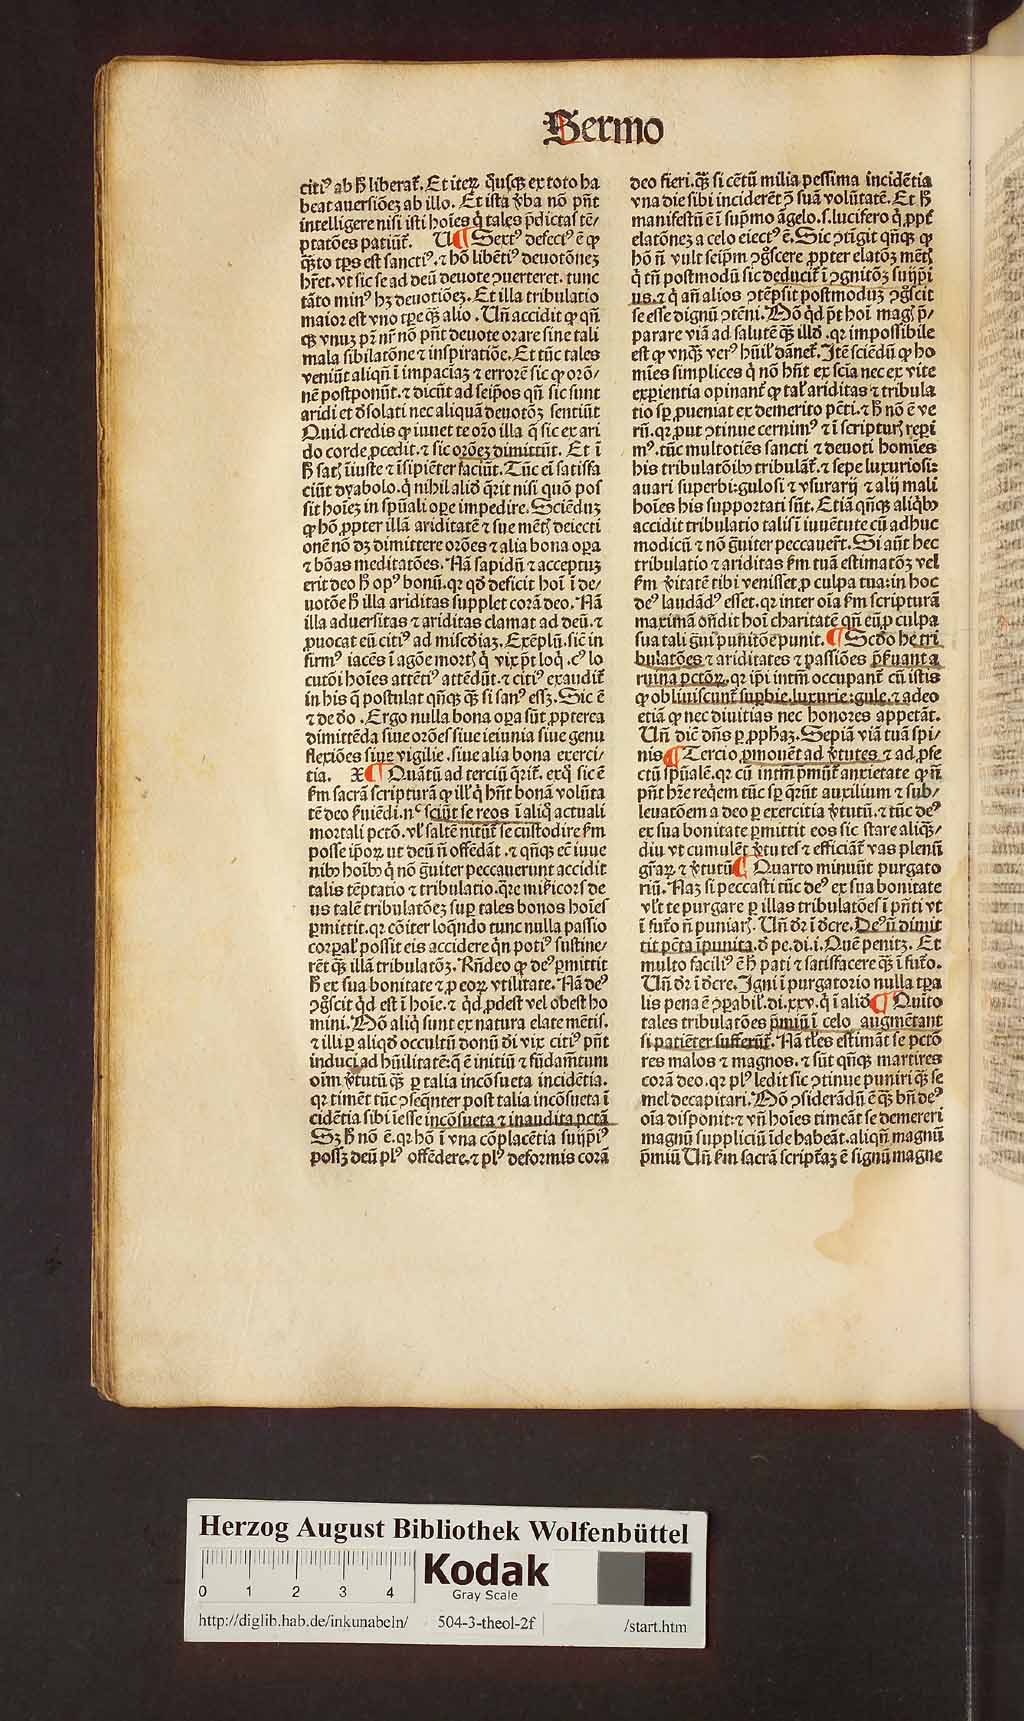 Sermo
citiꝰ ab hͦ liberat̄. Et iteꝝ q̈usqꝫ ex toto ha
beat auersiōeꝫ ab illo. Et ista v̓ba nō pn̄t
intelligere nisi isti hoīes q̇ tales p̄dictas tē/
ptatōes patiūt̄. V ¶ Sextꝰ defectꝰ ē ꝙ
qn̄to tp̄s est sanctiꝰ. ⁊ hō libētiꝰ deuotōneꝫ
hr̄et. vt sic se ad deū deuote ꝯuerteret. tunc
tāto minꝰ hꝫ deuotiōeꝫ. Et illa tribulatio
maior est vno tꝑe qꝫ alio. Vn̄ accidit ꝙ qn̄
qꝫ vnuꝫ pr̄ nr̄ nō pn̄t deuote orare sine tali
mala sibilatōne ⁊ inspiratiōe. Et tūc tales
veniūt aliqn̄ ī impaciaꝫ ⁊ errorē sic ꝙ orō/
nē postponūt. ⁊ dicūt ad seip̄os qn̄ sic sunt
aridi et dſolati nec aliquā deuotōꝫ sentiūt
Quid credis ꝙ iuuet te orō illa q̄ sic ex ari
do corde ꝓcedit. ⁊ sic orōeꝫ dimittūt. Et ī
hͦ satꝭ īiuste ⁊ īsipiēter faciūt. Tūc eī satisfa
ciūt dyabolo. q̇ nihil aliō q̄rit nisi quō pos
sit hoīeꝫ in spūali oꝑe impedire. Sciēduꝫ
ꝙ hō ꝓpter illā ariditatē ⁊ sue mētꝭ deiecti
onē nō dꝫ dimittere orōes ⁊ alia bona oꝑa
⁊ bōas meditatōes. Nā sapidū ⁊ acceptuꝫ
erit deo hͦ opꝰ bonū. qꝛ qd̓ deficit hoī ī de/
uotōe hͦ illa ariditas supplet corā deo. Nā
illa aduersitas ⁊ ariditas clamat ad deū. ⁊
ꝓuocat eū citiꝰ ad miscd̓iaꝫ. Exēplū. sic̄ in
firmꝰ iacēs ī agōe mortꝭ q̇ vix pōt loq̇. cꝰ lo
cutōi hoīes attētiꝰ attēdūt. ⁊ citiꝰ exaudit̄
in his q̄ postulat qn̄qꝫ qꝫ si sanꝰ essꝫ. Sic ē
⁊ de deo. Ergo nulla bona oꝑa sūt ꝓpterea
dimittēda siue orōes siue ieiunia siue genu
flexiōes siue vigilie. siue alia bona exerci/
tia. X ¶ Quātū ad terciū q̄rit̄. exq̇ sic ē
ẜm sacrā scripturā ꝙ ill̓ q̇ hn̄t bonā volūta
tē deo ẜuiēdi. nͨ sciūt se reos ī aliq̇ actuali
mortali pctō. vl̓ saltē nitūt̄ se custodire ẜm
posse ip̄oꝝ ut deū n̄ offēdāt. ⁊ qn̄qꝫ eē iuue
nibꝫ hoībꝫ q̇ nō g̈uiter peccauerunt accidit
talis tēptatio ⁊ tribulatio. q̄re mi̓cors de
us talē tribulatōeꝫ suꝑ tales bonos hoīes
ꝑmittit. qꝛ cōiter loq̄ndo tunc nulla passio
corꝑal̓ possit eis accidere q̇n potiꝰ sustine/
rēt qꝫ illā tribulatōꝫ. Rn̄deo ꝙ deꝰ ꝑmittit
hͦ ex sua bonitate ⁊ ꝓ eoꝝ vtilitate. Nā deꝰ
ꝯgscit qd̓ est ī hoīe. ⁊ qd̓ ꝓdest vel obest ho
mini. Nō aliq̇ sunt ex natura elate mētis.
⁊ illi ꝑ aliqd̓ occultū donū dī vix citiꝰ pn̄t
induci ad hūilitatē. q̄ ē initiū ⁊ fūdam̄tum
oīm v̓tutū qꝫ ꝑ talia incōsueta incidētia.
qꝛ timēt tūc ꝯseqn̄ter post talia incōsueta ī
cidētia sibi īesse incōsueta ⁊ inaudita pctā.
Sꝫ hͦ nō ē. qꝛ hō ī vna cōplacētia suijp̄iꝰ
possꝫ deū plꝰ offēdere. ⁊ plꝰ deformis corā
deo fieri. qꝫ si cētū milia pessima incidētia
vna die sibi inciderēt ꝯ suā volūtatē. Et hͦ
manifestū ē ī sup̄mo āgelo. s. lucifero q̇ ꝓpt̄
elatōneꝫ a celo eiectꝰ ē. Sic ꝯtīgit qn̄qꝫ ꝙ
hō n̄ vult seip̄m ꝯgscere ꝓpter elatōꝫ mētꝭ
q̇ tn̄ postmodū sic deducit̄ ī ꝯgnitōꝫ suijp̄i
us. ⁊ q̇ an̄ alios ꝯtēpsit postmoduꝫ ꝯgscit
se esse dignū ꝯtēni. Nō qd̓ pōt hoī magꝭ p̄/
parare viā ad salutē qꝫ illd̓. qꝛ impossibile
est ꝙ vnqꝫ verꝰ hūil̓ dānet̄. Itē sciēdū ꝙ ho
mīes simplices q̇ nō hn̄t ex scīa nec ex vite
exꝑientia opinant̄ ꝙ tal̓ ariditas ⁊ tribula
tio sꝑ ꝓueniat ex demerito pcti. ⁊ hͦ nō ē ve
rū. qꝛ put ꝯtinue cernimꝰ ⁊ ī scripturꝭ reꝑi
mꝰ. tūc multotiēs sancti ⁊ deuoti homies
his tribulatōibꝫ tribulāt̄. ⁊ sepe luxuriosi:
auari superbi: gulosi ⁊ vsurarij ⁊ alij mali
hoīes his supportati sūt. Etiā qn̄qꝫ aliqbꝫ
accidit tribulatio talis ī iuuētute cū adhuc
modicū ⁊ nō g̈uiter peccauer̄t. Si aūt hec
tribulatio ⁊ ariditas ẜm tuā estimatōꝫ vel
ẜm v̓itatē tibi venisset ꝓ culpa tua: in hoc
deꝰ laudādꝰ esset. qꝛ inter oīa ẜm scripturā
maximā on̄dit hoī charitatē qn̄ eū ꝓ culpa
sua tali g̈ui punitōe punit. ¶ Scd̓o he tri
bulatōes ⁊ ariditates ⁊ passiōes p̄ẜuant a
ruina pctōꝝ. qꝛ ip̄i intm̄ occupant̄ cū istis
ꝙ obliuiscunt̄ suꝑbie. luxurie: gule. ⁊ adeo
etiā ꝙ nec diuitias nec honores appetāt.
Vn̄ dic̄ dn̄s ꝑ ꝓphaꝫ. Sepiā viā tuā spi/
nis ¶ Tercio ꝓmouēt ad v̓tutes ⁊ ad ꝓfe
ctū spūalē. qꝛ cū intm̄ ꝑmūt̄ anxietate ꝙ n̄
pn̄t hr̄e req̄em tūc sꝑ q̄rūt auxilium ⁊ sub/
leuatōem a deo ꝑ exercitia v̓tutū. ⁊ tūc deꝰ
ex sua bonitate ꝑmittit eos sic stare aliqꝫ/
diu vt cumulēt v̓tutes ⁊ efficiāt̄ vas plenū
gr̄aꝝ ⁊ v̓tutū ¶ Quarto minuūt purgato
riū. Naꝫ si peccasti tūc deꝰ ex sua bonitate
vl̓t te purgare ꝑ illas tribulatōes ī pn̄ti vt
ī futō n̄ puniarꝭ. Vn̄ dr̄ ī dcr̄e. Deꝰ n̄ dimit
tit pctā īpunita. d̓ pe. di. i. Quē penitꝫ. Et
multo faciliꝰ ē hͦ pati ⁊ satisfacere qꝫ ī futō.
Vn̄ dr̄ ī dcr̄e. Igni ī purgatorio nulla tꝑa
lis pena ē ꝯꝑabil̓. di. xxv. q̇ ī aliō ¶ Quīto
tales tribulatōes p̄miū ī celo augmētant
si patiēter sufferūt̄. Nā tl̓es estimāt se pctō
res malos ⁊ magnos. ⁊ sūt qn̄qꝫ martires
corā deo. qꝛ plꝰ ledit sic ꝯtinue puniri qꝫ se
mel decapitari. Nō ꝯsiderādū ē qꝫ bn̄ deꝰ
oīa disponit: ⁊ vn̄ hoīes timeāt se demereri
magnū suppliciū īde habeāt. aliqn̄ magnū
p̄miū Vn̄ ẜm sacrā script̄aꝫ ē signū magne
Herzog August Bibliothek Wolfenbüttel
0 1 2 3 4
Kodak
Gray Scale
http://diglib.hab.de/inkunabeln/ 504-3-theol-2f /start.htm